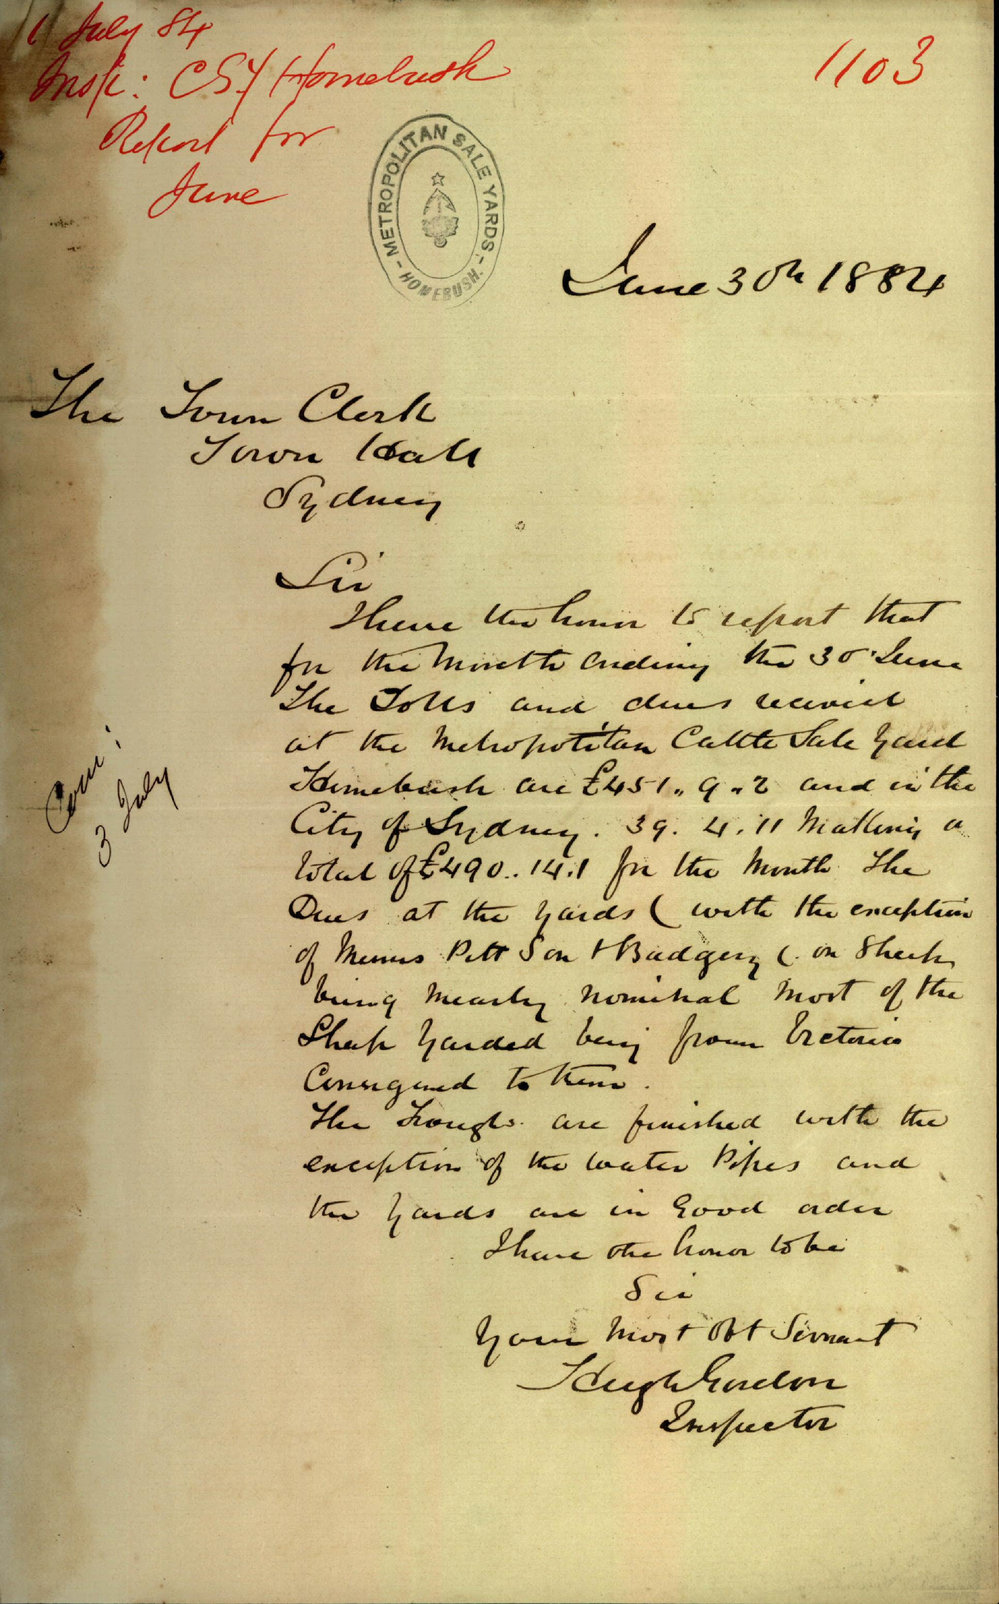 1 July 84
Insp: CSY Homebush
Report for
June
1103
METROPOLITAN SALE YARDS
- HOMEBUSH. -
June 30th 1884
The Town Clerk
Town Hall
Sydney
Sir
I have the honor to report that
for the Month Ending the 30 June
The Tolls and dues received
at the Metropolitan Cattle Sale Yard
Homebush are £451.. 9 .. 2 and in the
City of Sydney. 39. 4. 11 Making a
total of £490.. 14. 1 for the Month The
Dues at the yards ( with the exception
of Messrs Pitt Son & Badgery ( on Sheep
being nearly nominal Most of the
Sheep Yarded being from Victoria
Consigned to them.
The Troughs are finished with the
exception of the water Pipes and
the Yards are in Good order
I have the honor to be
Sir
Your Most Obt Servant
Hugh Gordon
Inspector
Com:
3 July